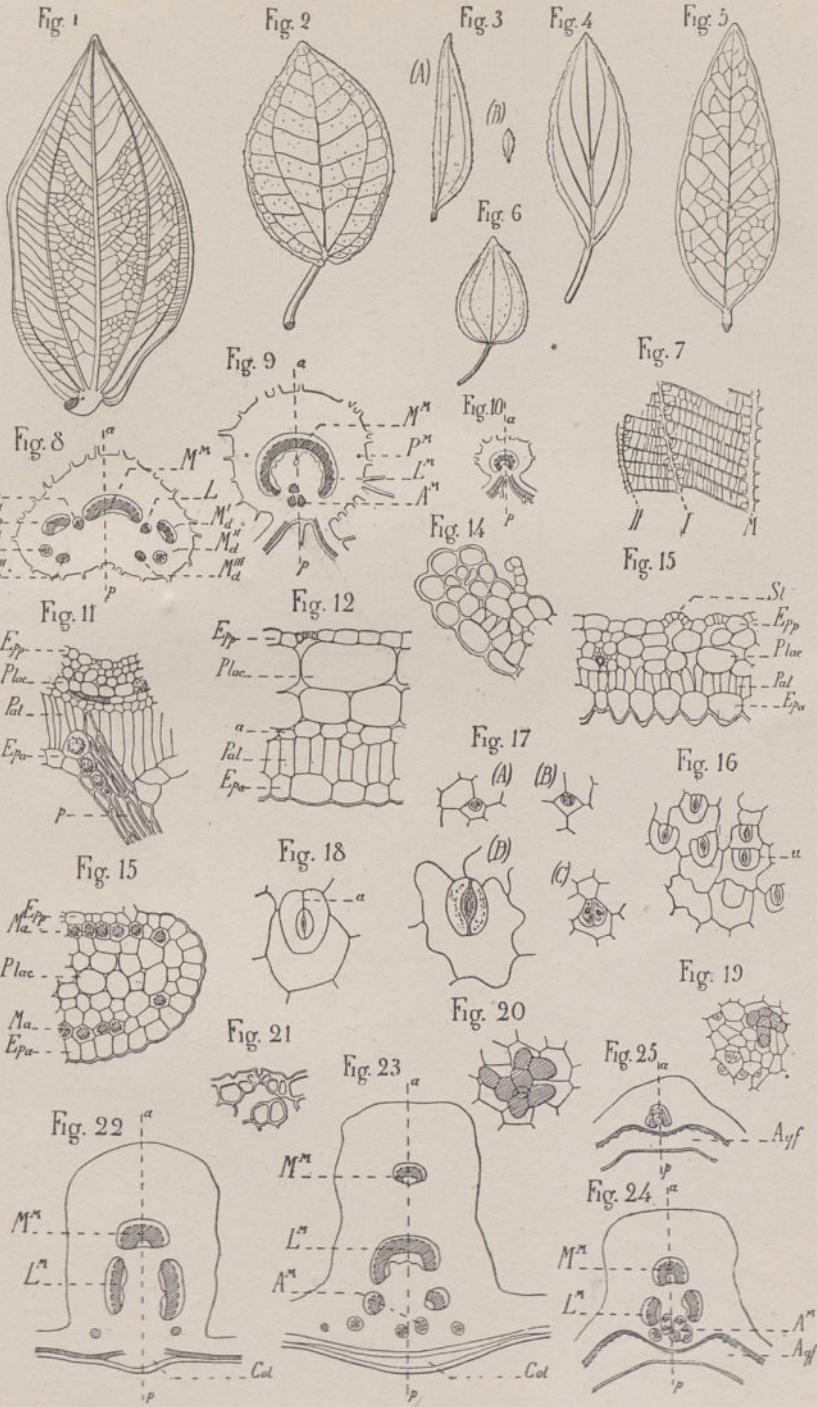 Fig. 1
Fig. 2
Fig. 3
Fig. 4
Fig. 5
(A)
(B)
Fig. 6
Fig. 7
II
I
M
Fig. 8
a
Mᴹ
L
M'd
M''d
M'''d
p
Fig. 9
a
Mᴹ
Pᴹ
Lᴹ
Aᴹ
p
Fig. 10
a
p
Fig. 11
Epp
Plac
Pal
Epa
p
Fig. 12
Epp
Plac
a
Pal
Epa
Fig. 14
Fig. 15
St
Epp
Plac
Pal
Epa
Fig. 17
(A)
(B)
(C)
(D)
Fig. 16
a
Fig. 15
Epp
Ma
Plac
Ma
Epa
Fig. 18
a
Fig. 19
Fig. 20
Fig. 21
Fig. 22
a
Mᴹ
Lᴹ
Col
p
Fig. 23
a
Mᴹ
Lᴹ
Aᴹ
Col
p
Fig. 25
a
Agf
p
Fig. 24
a
Mᴹ
Lᴹ
Aᴹ
Agf
p